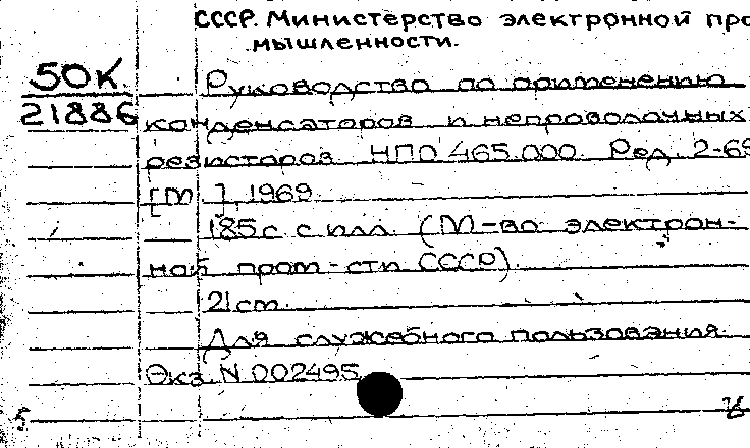 СССР. Министерство электронной про
мышленности.
50К.
21886
Руководство по применению
конденсаторов и непроволочных
резисторов НПО 465.000. Ред. 2-69
[М], 1969.
185с. с илл. (М-во электрон-
ной пром-сти СССР).
21см.
Для служебного пользования.
Экз. N 002495